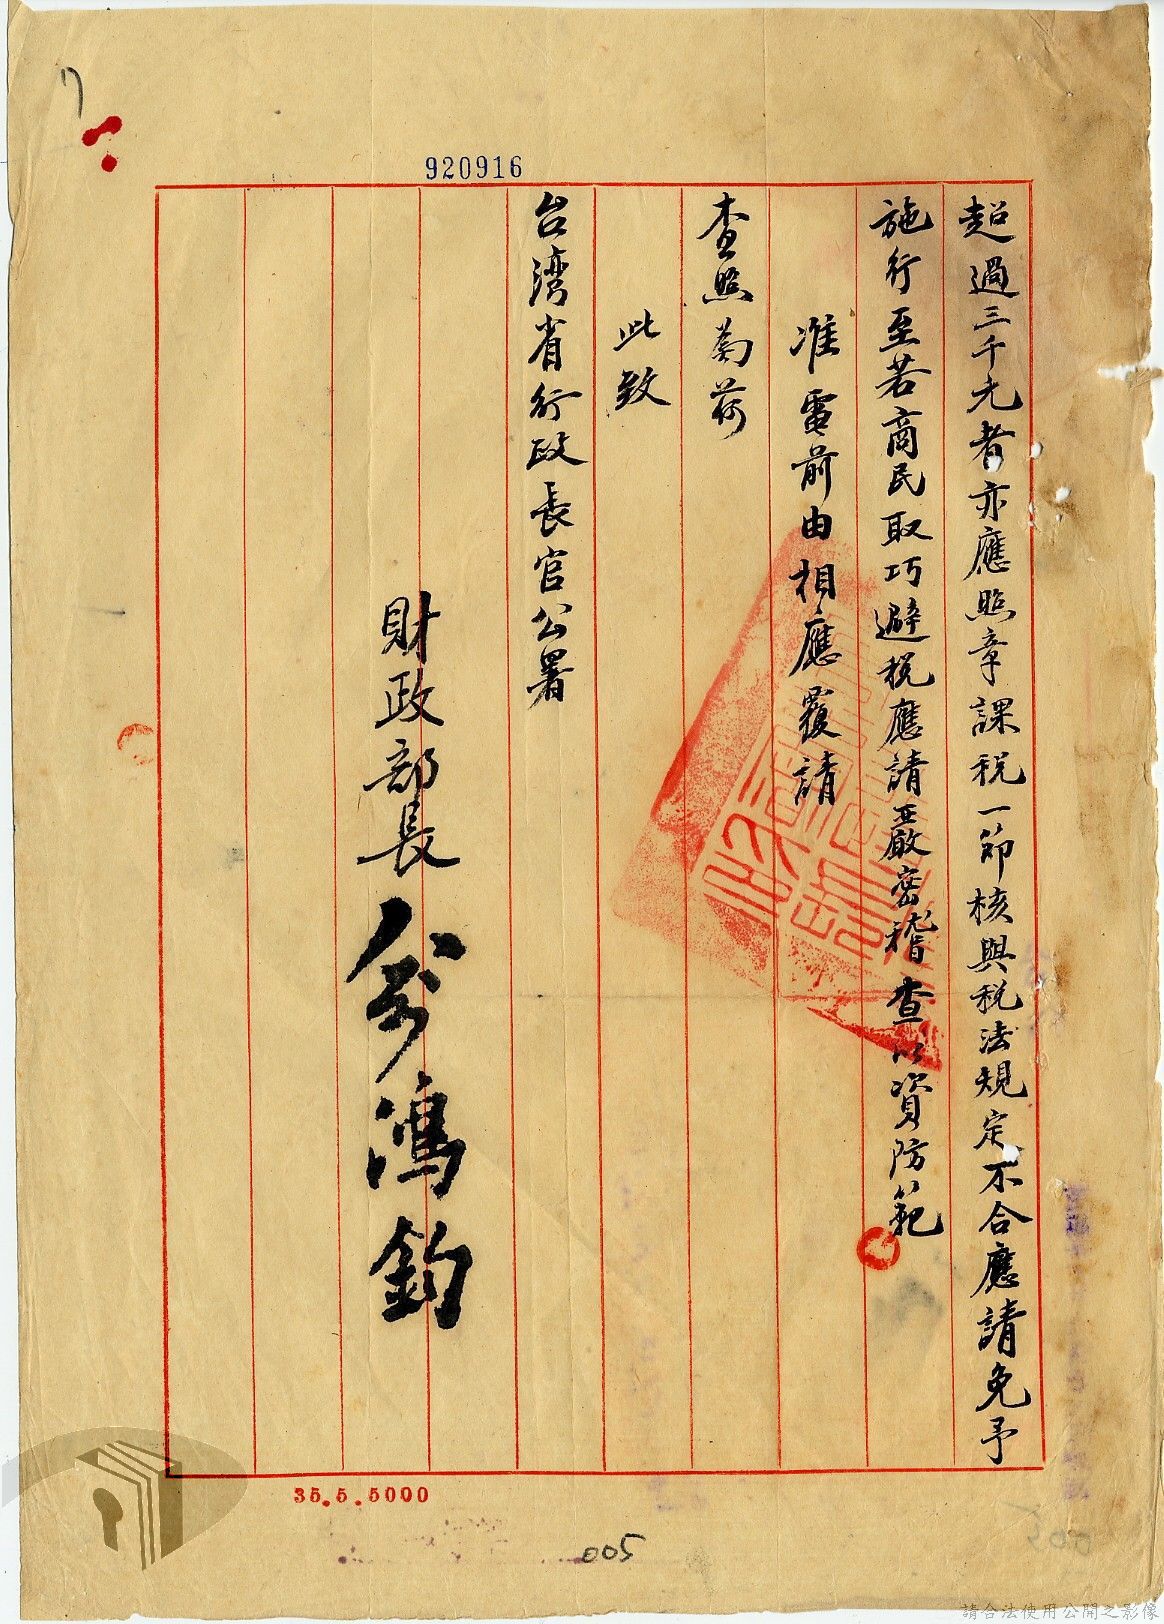 920916
超過三千元者亦應照章課税一節核與税法規定不合應請免予
施行至若商民取巧避税應請嚴密稽查以資防範
准電前由相應覆請
查照為荷
此致
台湾省行政長官公署
財政部長俞鴻鈞
35.5.5000
005
請合法使用公開之影像